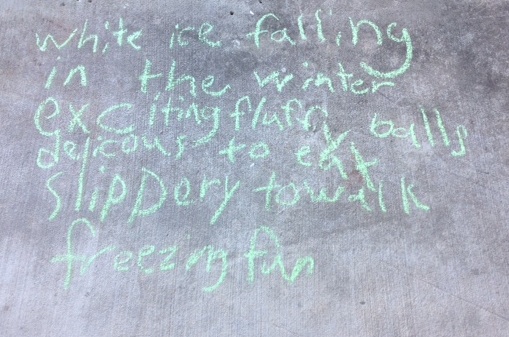 white ice falling
in the winter
exciting fluffy balls
delicous to eat
slippory to walk
freezing fun